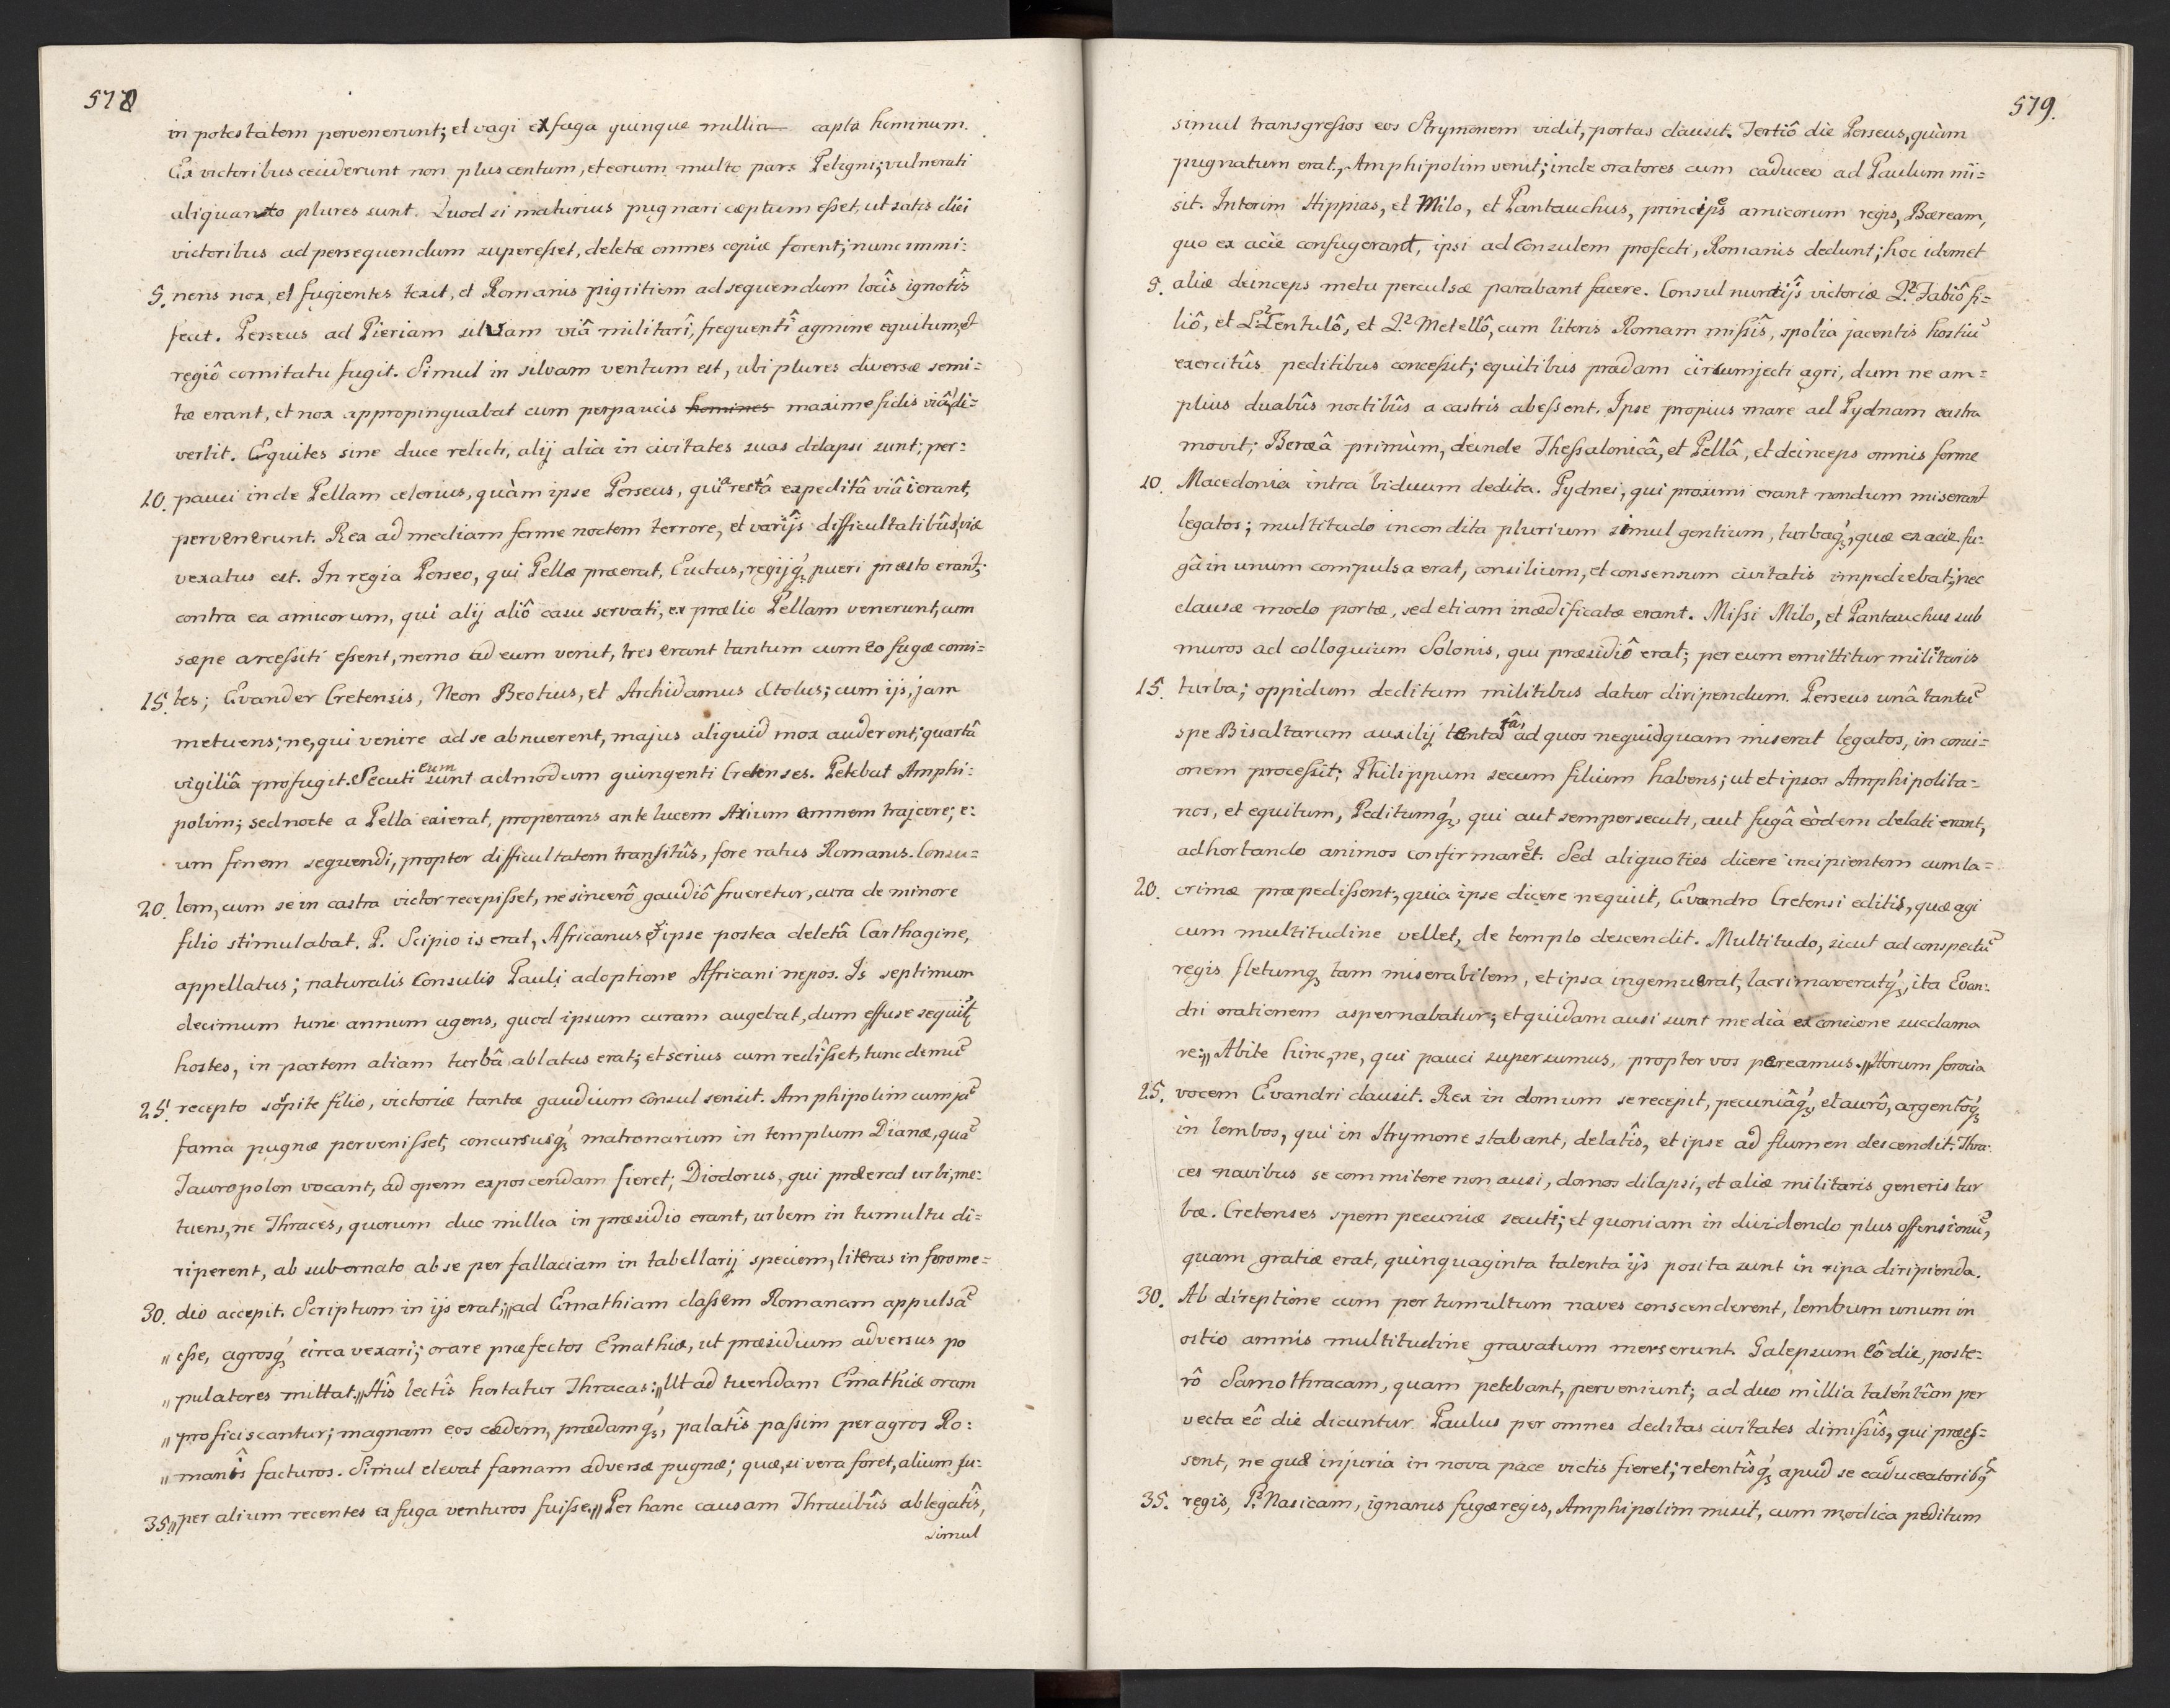 578
in potestatem pervenerunt; et vagi ex fuga quinque millia capta hominum.
Ex victoribus ceciderunt non plus centum, et eorum multo pars Peligni; vulnerati
aliquanto plures sunt. Quod si maturius pugnari cæptum esset, ut satis diei
victoribus ad persequendum superesset, deletæ omnes copiæ forent; nunc immi=
5. nens nox, et fugientes texit, et Romanis pigritiem ad sequendum locîs ignotîs
fecit. Perseus ad Pieriam silvam viâ militarî, frequentî agmine equitum, et
regiô comitatu fugit. Simul in silvam ventum est, ubi plures diversæ semi=
tæ erant, et nox appropinquabat cum perpaucis homines maxime fidis viâ di=
vertit. Equites sine duce relicti, alij alia in civitates suas dilapsi sunt; per=
10. pauci inde Pellam celerius, quàm ipse Perseus, quia rectâ expeditâ viâ ierant,
pervenerunt. Rex ad mediam ferme noctem terrore, et varijs difficultatibûs viæ
vexatus est. In regia Perseo, qui Pellæ præerat, Euctus, regijq́ꝫ pueri præsto erant;
contra ea amicorum, qui alij aliô casu servati, ex prælio Pellam venerunt, cum
sæpe arcessiti essent, nemo ad eum venit, tres erant tantum cum eo fugæ comi=
15. tes; Evander Cretensis, Neon Beotius, et Archidamus Ætolus; cum ijs, jam
metuens; ne, qui venire ad se abnuerent, majus aliquid mox auderent; quartâ
vigiliâ profugit. Secuti eum sunt admodum quingenti Cretenses. Petebat Amphi=
polim; sed nocte a Pella exierat, properans ante lucem Axium amnem trajcere; e=
um finem sequendi, propter difficultatem transitûs, fore ratus Romanis. Consu=
20. lem, cum se in castra victor recepisset, ne sincerô gaudiô frueretur, cura de minore
filio stimulabat. P. Scipio is erat, Africanus et ipse postea deletâ Carthagine,
appellatus; naturalis Consulis Pauli adoptione Africani nepos. Is septimum
decimum tunc annum agens, quod ipsum curam augebat, dum effuse sequit᷑
hostes, in partem aliam turbâ ablatus erat; et serius cum redîsset, tunc demũ
25. recepto sospite filio, victoriæ tantæ gaudium Consul sensit. Amphipolim cum jã
fama pugnæ pervenisset, concursusq́ꝫ matronarum in templum Dianæ, quã
Tauropolon vocant, ad opem exposcendam fieret; Diodorus, qui præerat urbi, me=
tuens, ne Thraces, quorum duo millia in præsidio erant, urbem in tumultu di=
riperent, ab subornato ab se per fallaciam in tabellarij speciem, literas in foro me=
30. dio accepit. Scriptum in ijs erat; „ad Emathiam classem Romanam appulsã
„ esse, agrosq́ꝫ circa vexari; orare præfectos Emathiæ, ut præsidium adversus po
„ pulatores mittat„ Hîs lectîs hortatur Thracas: „Ut ad tuendam Emathiæ oram
„ proficiscantur; magnam eos cædem, prædamq́ꝫ, palatîs passim per agros Ro=
„ manîs facturos. Simul elevat famam adversæ pugnæ; quæ, si vera foret, alium su=
35. „per alium recentes ex fuga venturos fuisse.„ Per hanc causam Thracibûs ablegatîs,
simul
579.
simul transgressos eos Strymonem vidit, portas clausit. Tertiô die Perseus, quàm
pugnatum erat, Amphipolim venit; inde oratores cum caduceo ad Paulum mi=
sit. Interim Hippias, et Milo, et Pantauchus, principes amicorum regis, Bæream,
quo ex acie confugerant, ipsi ad Consulem profecti, Romanis dedunt; hoc idem et
5. aliæ deinceps metu perculsæ parabant facere. Consul nuntijs victoriæ Q. Fabiô fi=
liô, et L. Lentulô, et Q. Metellô, cum literis Romam missîs, spolia jacentis hostiũ
exercitûs peditibus concessit; equitibus prædam circumjecti agri, dum ne am=
plius duabûs noctibûs a castris abessent. Ipse propius mare ad Pydnam castra
movit; Beræâ primùm, deinde Thessalonicâ, et Pellâ, et deinceps omnis ferme
10. Macedonia intra biduum dedita. Pydnei, qui proximi erant nondum miserant
legatos; multitudo incondita plurium simul gentium, turbaq́ꝫ, quæ ex acie fu=
gâ in unum compulsa erat, consilium, et consensum civitatis impediebat; nec
clausæ modo portæ, sed etiam inædificatæ erant. Missi Milo, et Pantauchus sub
muros ad colloquium Solonis, qui præsidiô erat; per eum emittitur militaris
15. turba; oppidum deditum militibus datur diripendum. Perseus unâ tantũ
spe Bisaltarum auxilij tentatâ, ad quos nequidquam miserat legatos, in conci=
onem processit; Philippum secum filium habens; ut et ipsos Amphipolita=
nos, et equitum, Peditumq́ꝫ, qui aut semper secuti, aut fugâ eòdem delati erant,
adhortando animos confirmaret. Sed aliquoties dicere incipientem cum la=
20. crimæ præpedissent; quia ipse dicere nequiit, Evandro Cretensi editis, quæ agi
cum multitudine vellet, de templo descendit. Multitudo, sicut ad conspectũ
regis fletumqꝫ tam miserabilem, et ipsa ingemuerat, lacrimaveratq́ꝫ, ita Evan=
dri orationem aspernabatur; et quidam ausi sunt media ex concione succlama
re: „Abite hinc, ne, qui pauci supersumus, propter vos pereamus.„ Horum ferocia
25. vocem Evandri clausit. Rex in domum se recepit, pecuniâq́ꝫ, et aurô, argentôq́ꝫ
in lembos, qui in Strymone stabant, delatîs, et ipse ad flumen descendit. Thra=
ces navibus se committere non ausi, domos dilapsi, et aliæ militaris generis tur
bæ. Cretenses spem pecuniæ secuti; et quoniam in dividendo plus offensionũ,
quam gratiæ erat, quinquaginta talenta ijs posita sunt in ripa diripienda.
30. Ab direptione cum per tumultum naves conscenderent, lembum unum in
ostio amnis multitudine gravatum merserunt. Galepsum eô die, poste=
rô Samothracam, quam petebant, perveniunt; ad duo millia talentûm per
vecta eô die dicuntur. Paulus per omnes deditas civitates dimissîs, qui præes=
sent, ne quæ injuria in nova pace victis fieret; retentîsq́ꝫ apud se caduceatoribꝫ
35. regis, P. Nasicam, ignarus fugæ regis, Amphipolim misit, cum modica peditum